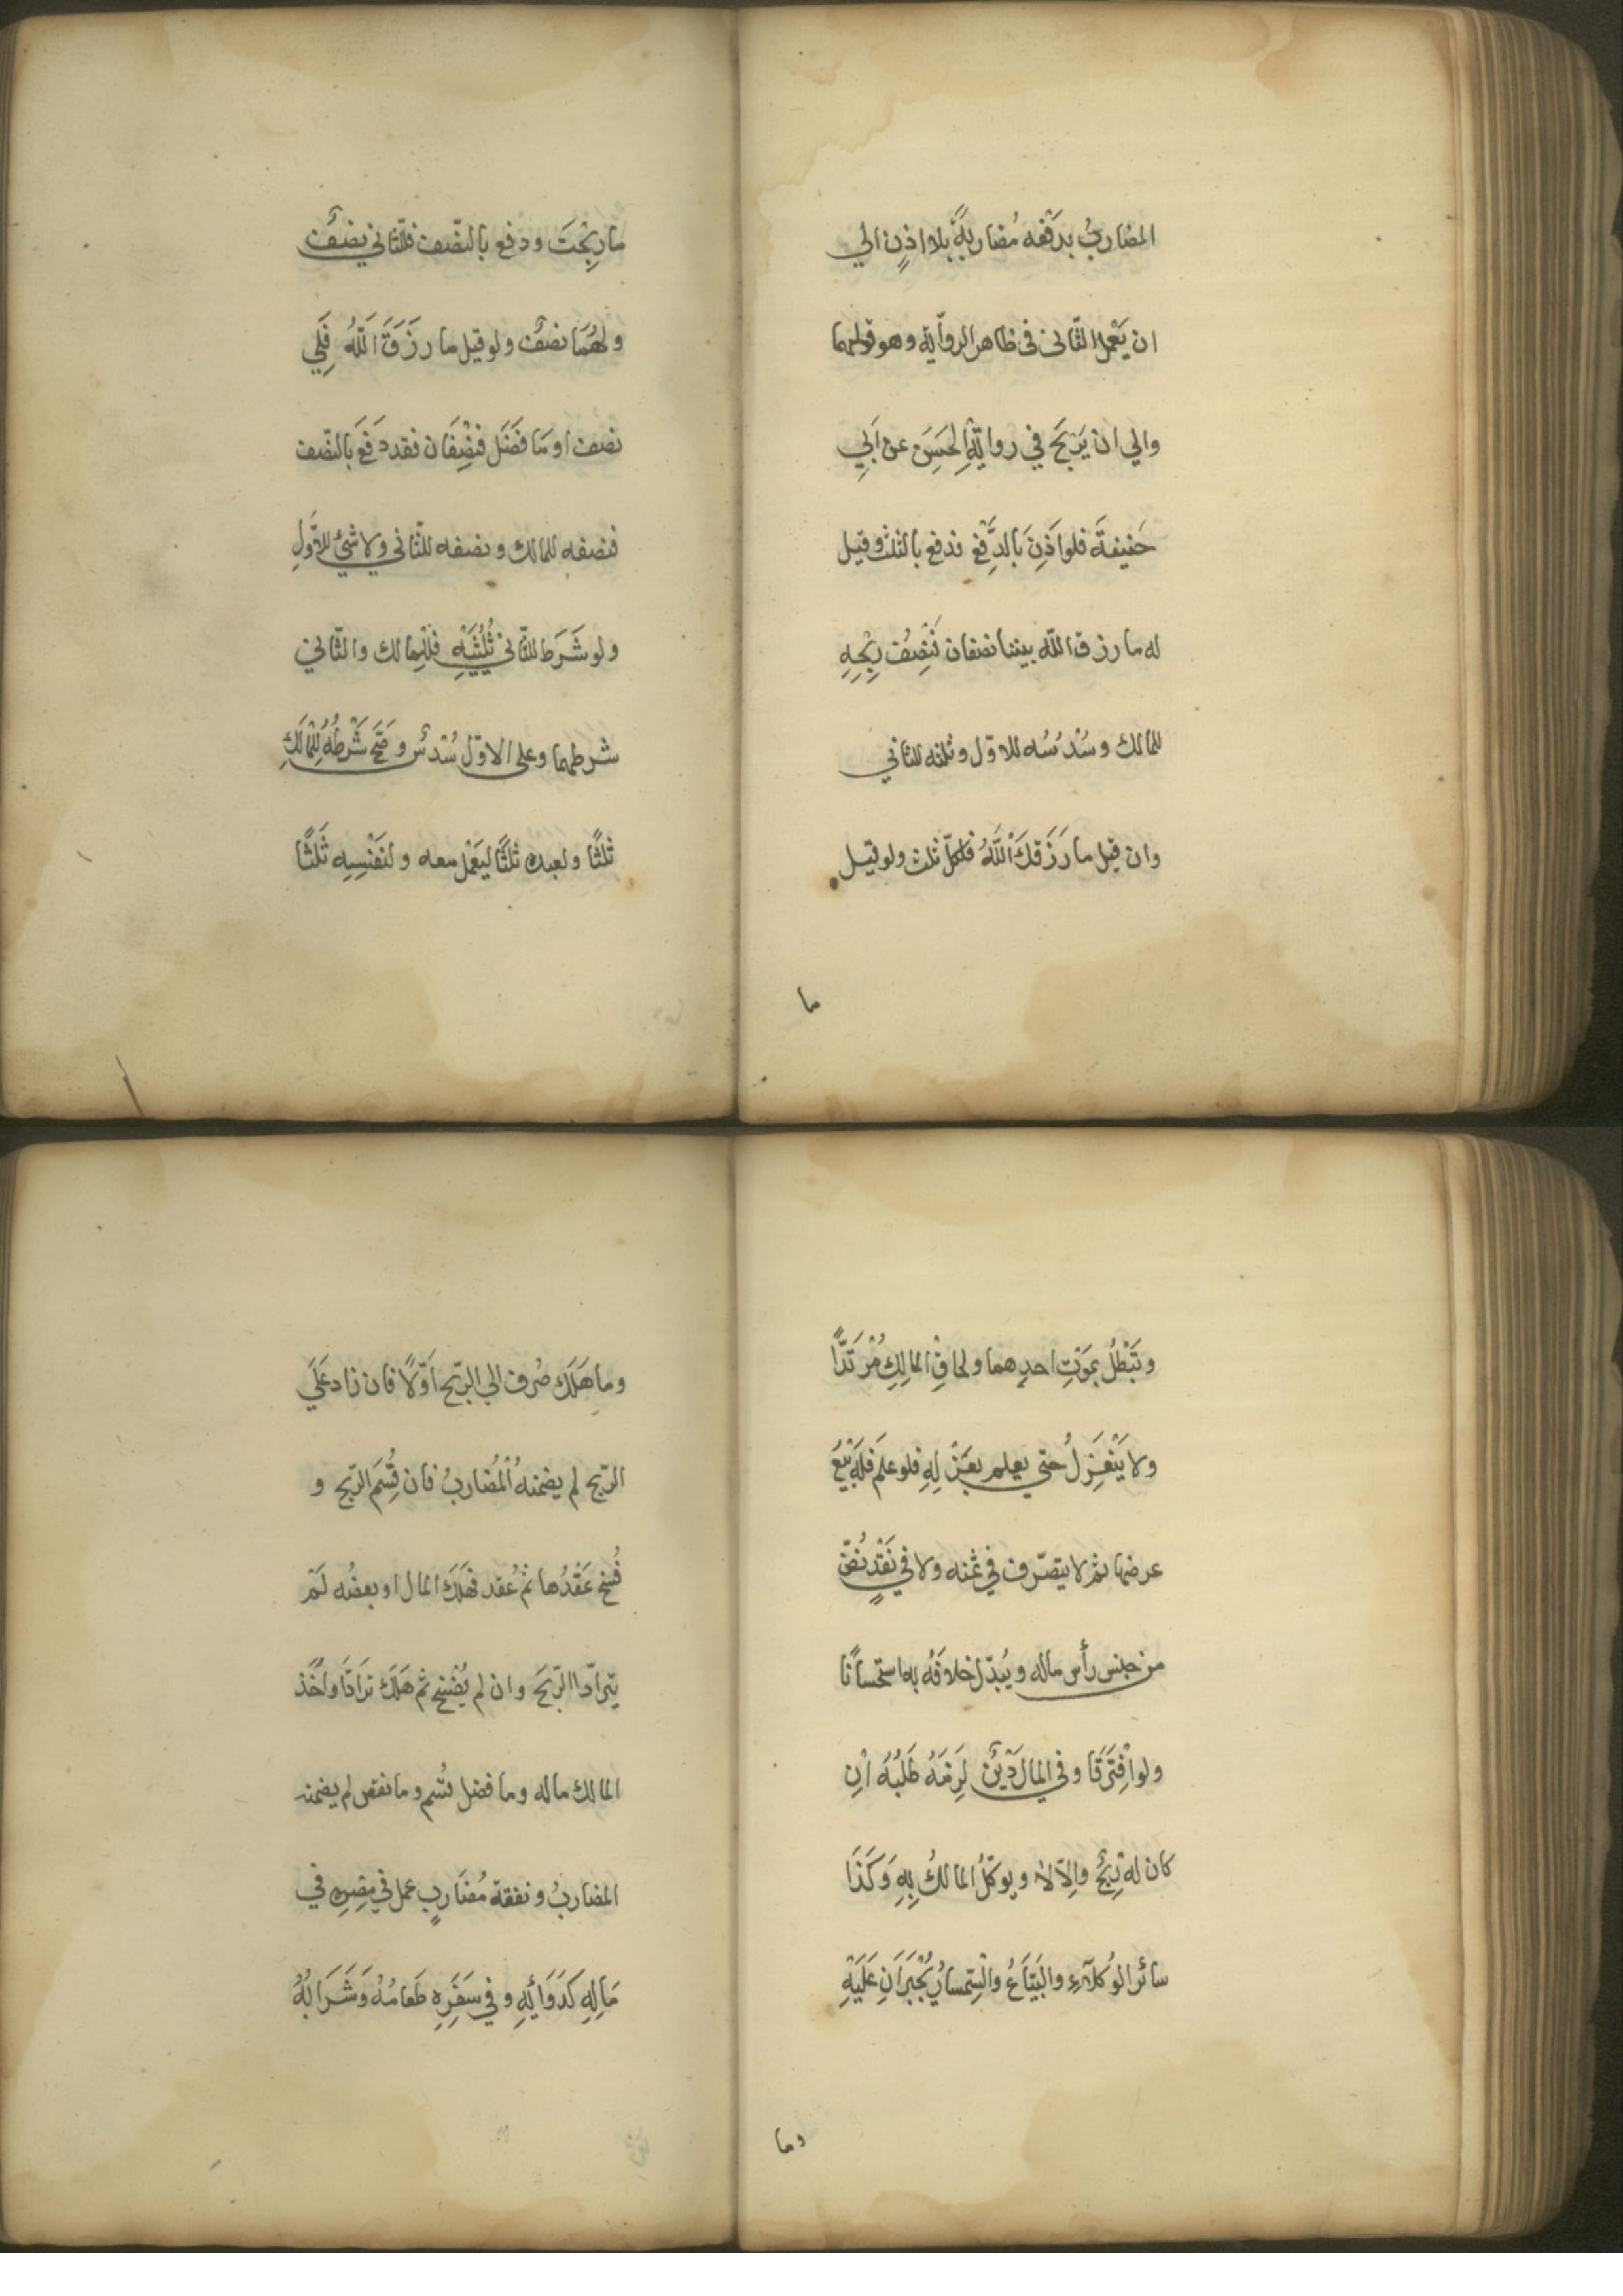 المضاربُ بدَفْعه مُضاربةً بلا اذنٍ الي
ان يَعْمل الثّانى فى ظاهر الروآية وهو قولهما
والي ان يَرْبَحَ في روايةِ الحَسَن عن اَبِي
حَنيفةَ فلو اَذِنَ بالدَّفْعِ فدفع بالثلث وقيل
له ما رزق اللّه بيننا نصفان فَنِصْف رِبْحِهِ
للمالك وسُدْسُه للاوّل وثلثه للثاني
وان قيل ما رَزَقكَ اللّهُ فلكلّ ثلث ولو قيل
ما
ما ربِحْتَ ودفع بالنّصف فللثّاني نصفٌ
ولهُمَا نصفٌ ولو قيل ما رزَقَ اَللّهُ فَلِي
نصف او مَا فَضَل فنِصْفَان فقد دَفَعَ بالنّصف
فنصفه للمالك ونصفه للثّاني ولا شئ للاَوّلِ
ولو شَرَط للثّاني ثُلُثَيْهِ فلِلْمالك والثّاني
شرطهما وعلى الاوّل سُدْسٌ وصَحَّ شَرْطُهُ لِلْمَالِكِ
ثلثًا ولعبده ثلثًا ليَعْمل معه ولنَفْسِهِ ثَلثًا
وتَبْطُلُ بمَوْتِ احدِهما ولحاقِ المالِكِ مُرْتَدًّا
ولا يَنْعَزِلُ حتي يعلم بعَزْلِهِ فلو علم فله بَيْعُ
عرضها ثم لا يتصّرف في ثمنه ولا في نَقْدٍ نُضّ
من جنس رأس ماله ويُبدّل خلافَهُ به استحسانًا
ولو اْفتَرَقَا وفي المال دَيْنٌ لَزِمَهُ طَلَبُهُ اْنِ
كان له رِبْحٌ والّا لا ويوكّلُ المالكُ بِهِ وَكَذَا
سائر الوُكلآءِ والبَيّاعُ والسِّمسارُ يُجْبَرَانِ عَلَيْهِ
وما
وما هَلَك صُرف الي الرّبح اَوّلًا فان زاد عَلَي
الرّبح لم يضمنهُ اْلمُضاربُ فان قُسِّمَ الرّبح و
فُسخ عَقْدُها ثم عُقد فهَلَكَ المال او بعضُه لَمْ
يترادّا الرّبحَ وان لم يُفْسخ ثم هَلَك تَرَادّا واَخَذ
المالك ماله وما فضل قُسّم وما نقص لم يضمنه
المضاربُ ونفقة مُضَاربٍ عمل في مِصْرِه في
مَالِهِ كَدَوَائِهِ وفي سَفَرِهِ طَعَامُهُ وَشَرَابُهُ